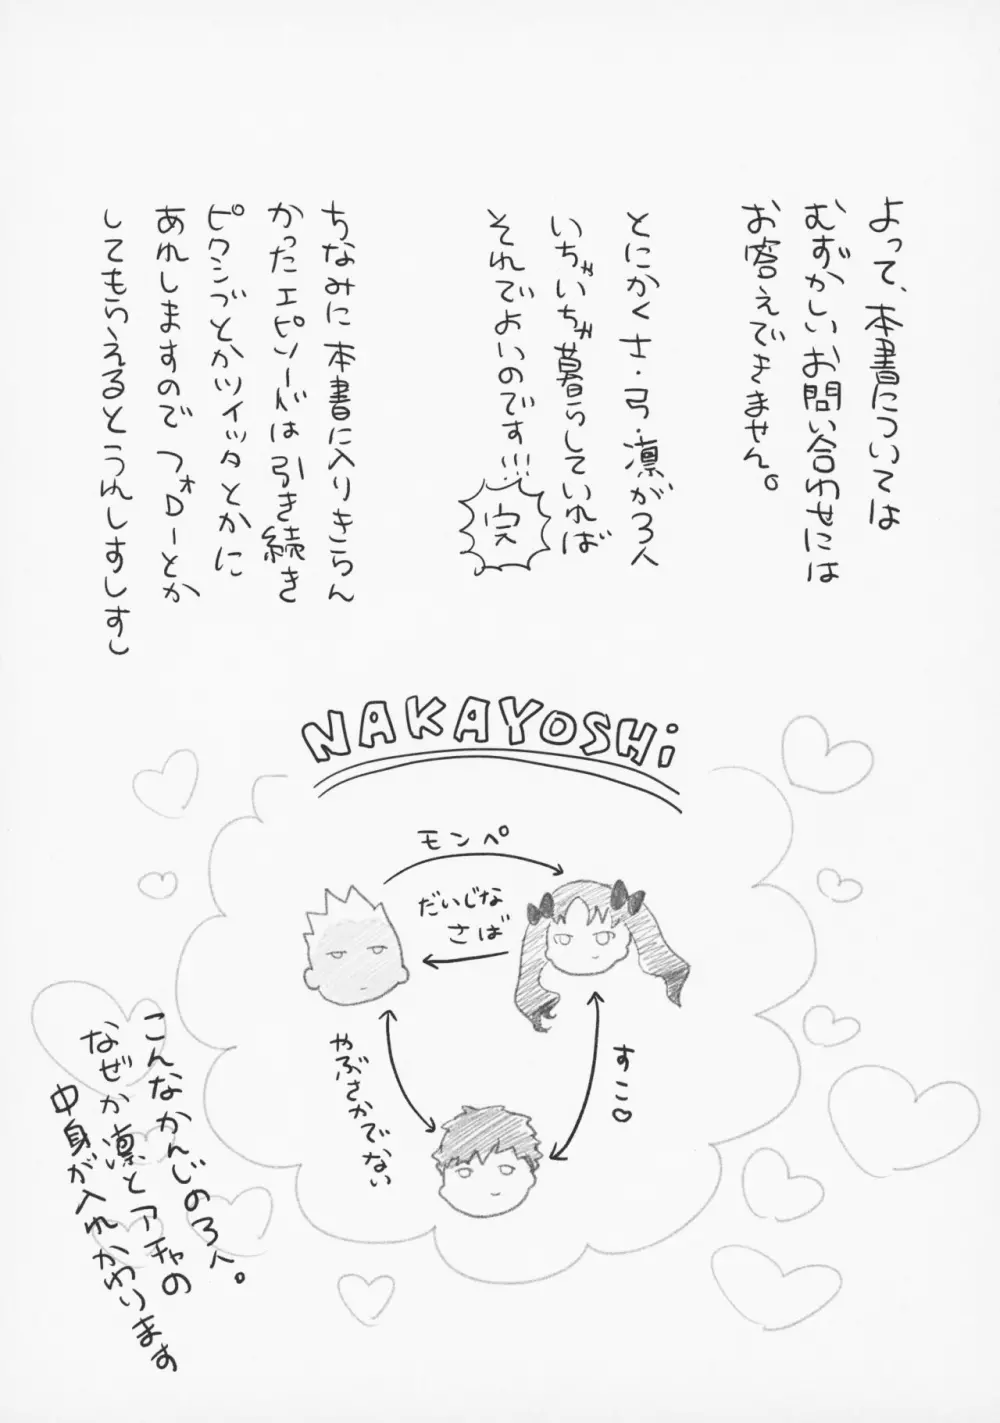 よって、本書については
むずかしいお問い合わせには
お答えできません。
とにかく士・弓・凛が3人
いちゃいちゃ暮らしていれば
それでよいのです!!!
完
ちなみに本書に入りきらん
かったエピソードは引き続き
ピクシブとかツイッタとかに
あれしますのでフォローとか
してもらえるとうれしすしすし
NAKAYOSHi
モンペ
だいじな
さば
やぶさかでない
すこ♡
こんなかんじの3人。
なぜか凛とアチャの
中身が入れかわります